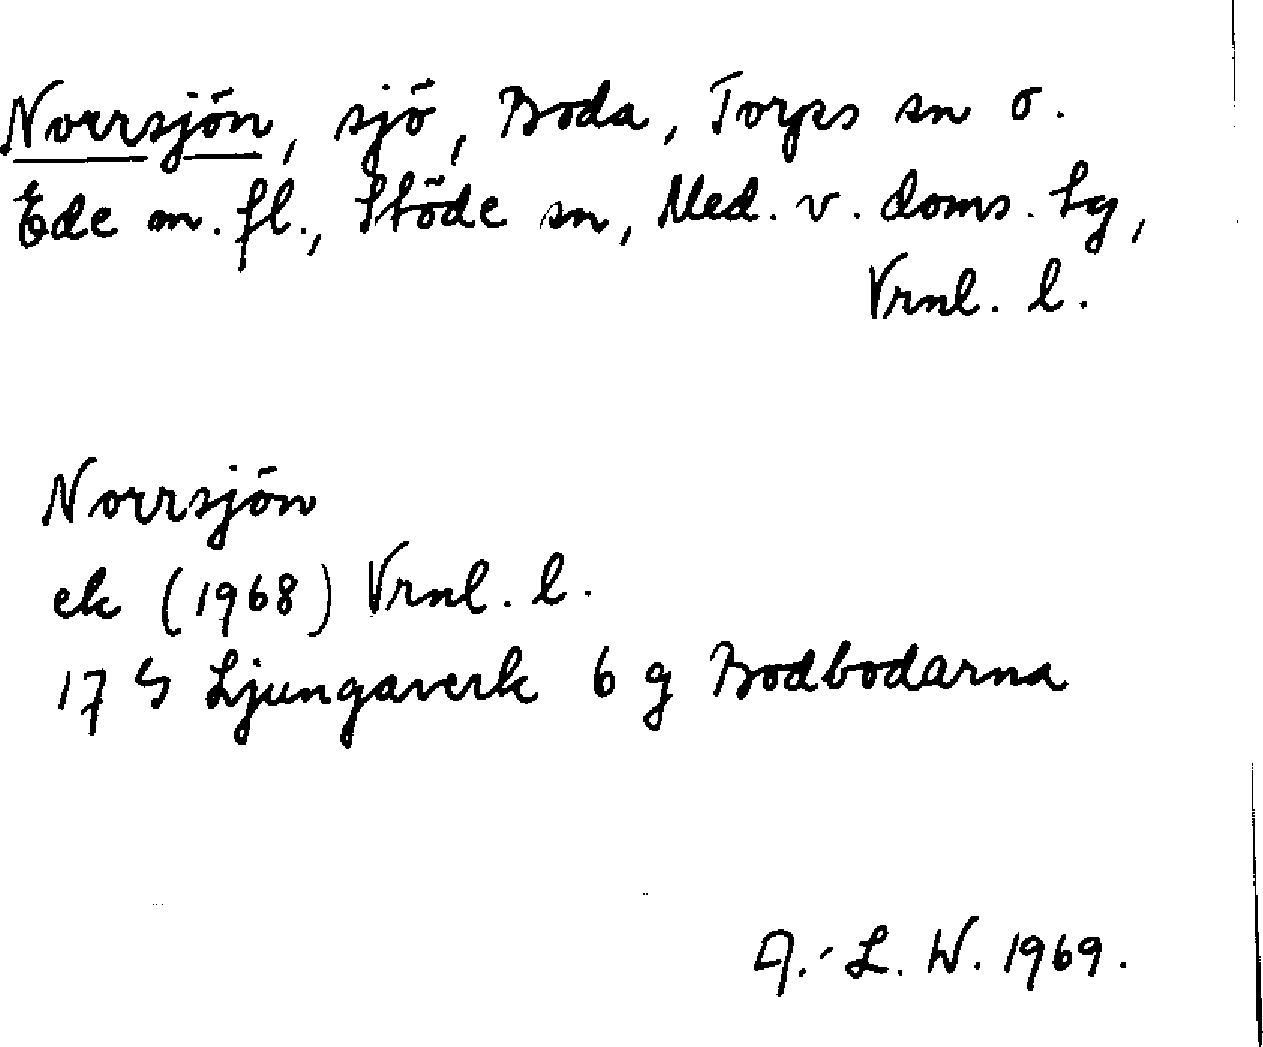 Norrsjön, sjö, Boda, Torps sn o.
Ede m. fl., Stöde sn, Med. v. doms. lg,
Vrnl. l.
Norrsjön
ek (1968) Vrnl. l.
17 G Ljungaverk 6 g Bodbodarna
A.-L. W. 1969.